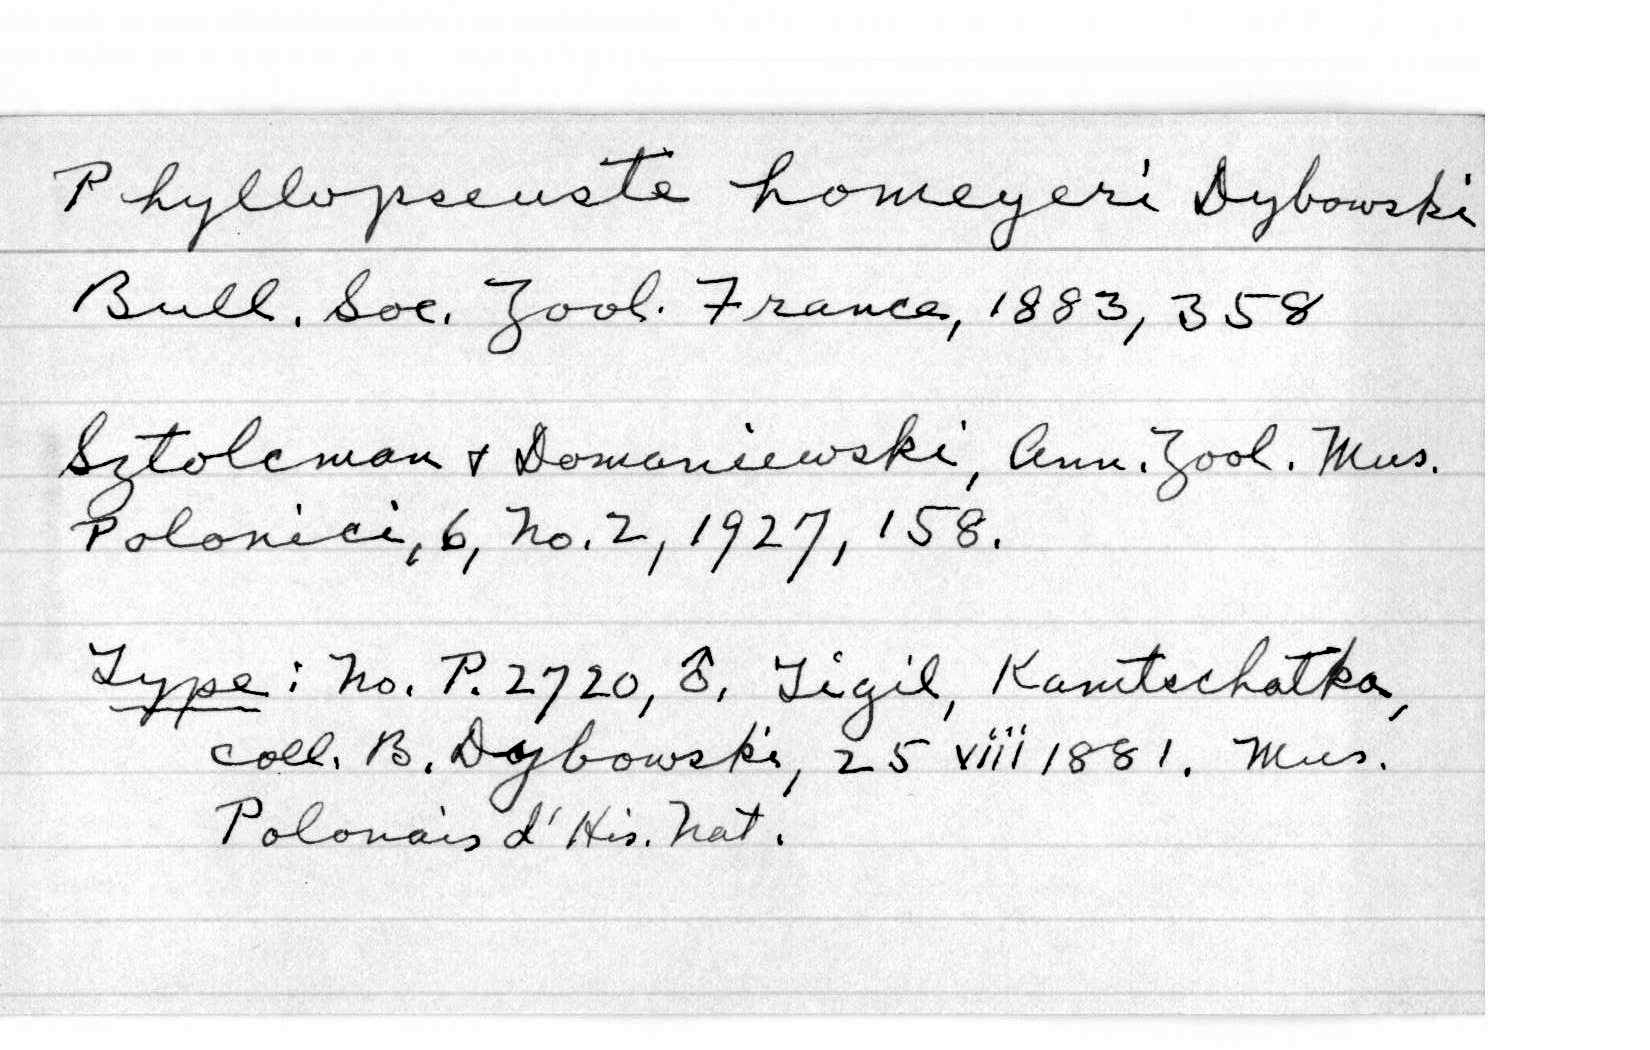 Phyllopseuste homeyeri Dybowski
Bull. Soc. Zool. France, 1883, 358
Sztolcman & Domaniewski, Ann. Zool. Mus.
Polonici, 6, No. 2, 1927, 158.
Type: No. P. 2720, ♂. Tigil, Kamtschatka,
coll. B. Dybowski, 25 viii 1881. Mus.
Polonais d'His. Nat.